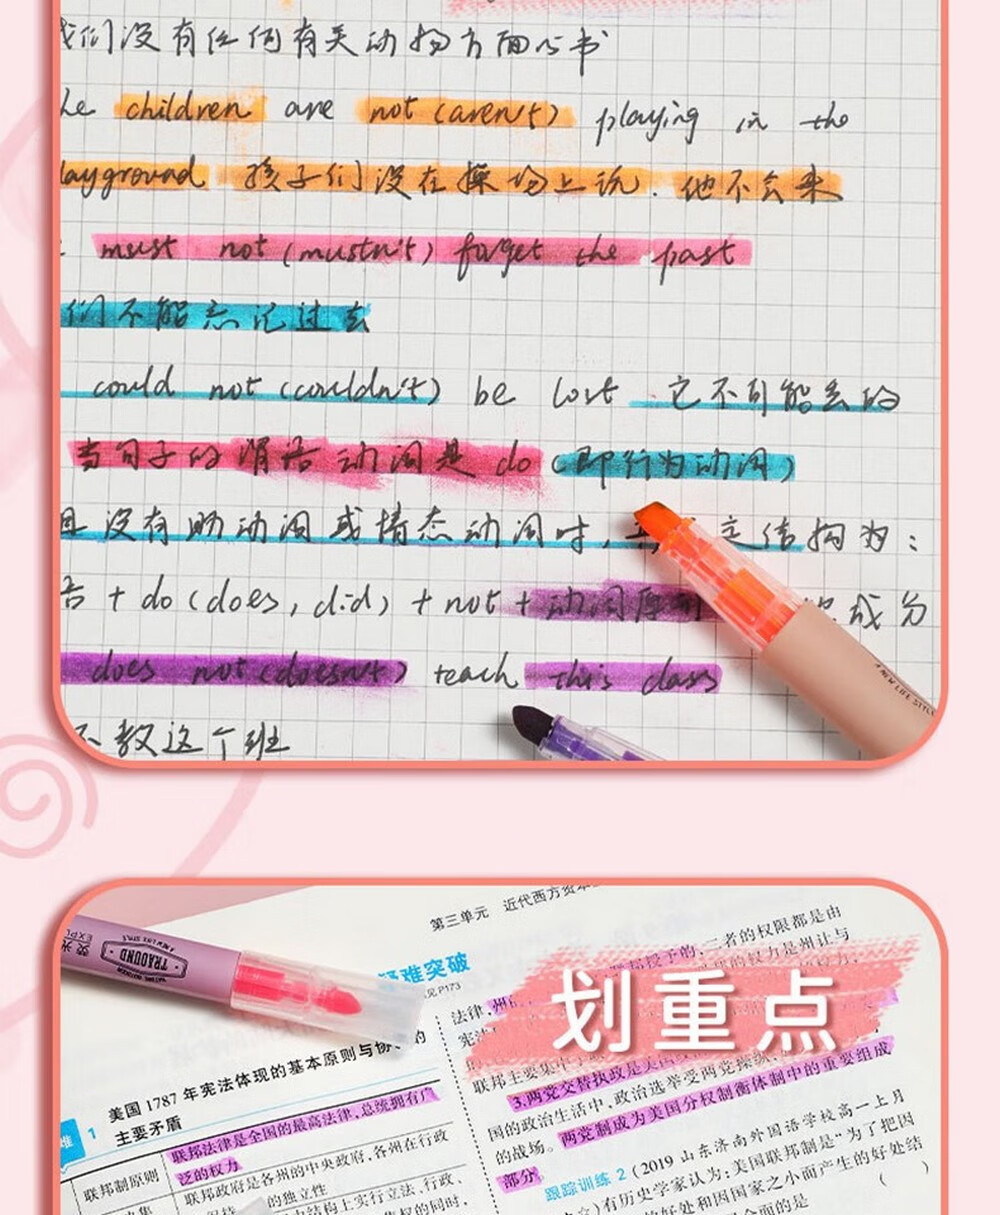 我们没有任何有关动物方面心书
he children are not (aren't) playing in the
layground 孩子们没在操场上说. 他不会来
must not (mustn't) forget the past
们不能忘记过去
could not (couldn't) be lost 它不可能丢的
当句子的谓语动词是 do (即行为动词)
且没有助动词或情态动词时, 定结构为:
+ do (does, did) + not + 动词原 成分
does not (doesn't) teach this class
不教这个班
A NEW LIFE STYLE
第三单元 近代西方资本
疑难突破
见P173
荧光
TRAOUND
A NEW LIFE STYLE
划重点
者的权限都是由
的权力是州让与
法律,州
宪法
联邦主要集
3.两党交替执政是美国
国的政治生活中,政治选举受两党操
的战场。两党制成为美国分权制衡体制中的重要组成
部分。
跟踪训练 2 (2019 山东济南外国语学校高一上月
)有历史学家认为:美国联邦制是“为了把因
的好处和因国家之小而产生的好处结
合 全面的是 ( )
难 1 美国 1787 年宪法体现的基本原则与协 的
主要矛盾
联邦制原则
联邦法律是全国的最高法律,总统拥有广
泛的权力
联邦政府是各州的中央政府,各州在行政
的独立性
结构上实行立法、行政、
权的同时,